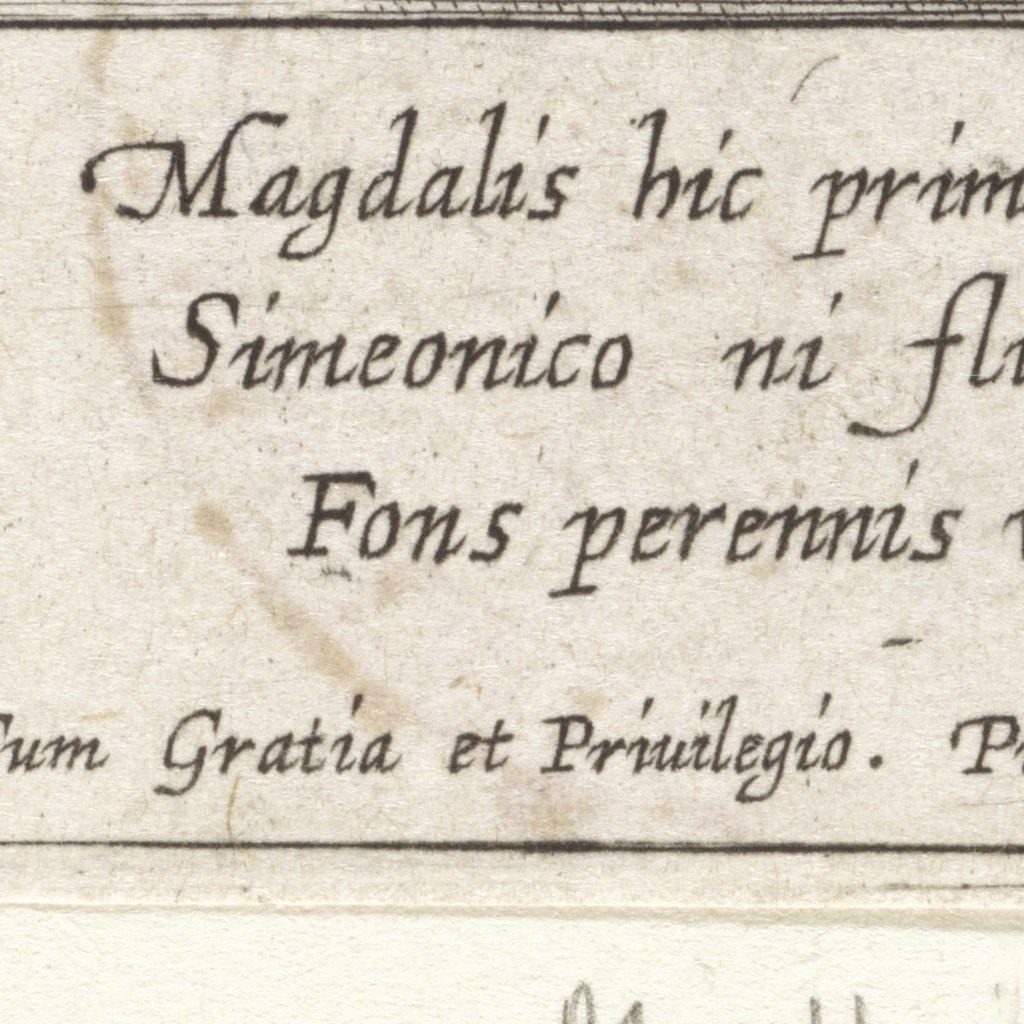 Magdalis hic prim
Simeonico ni fl
Fons perennis
Cum Gratia et Priuilegio.